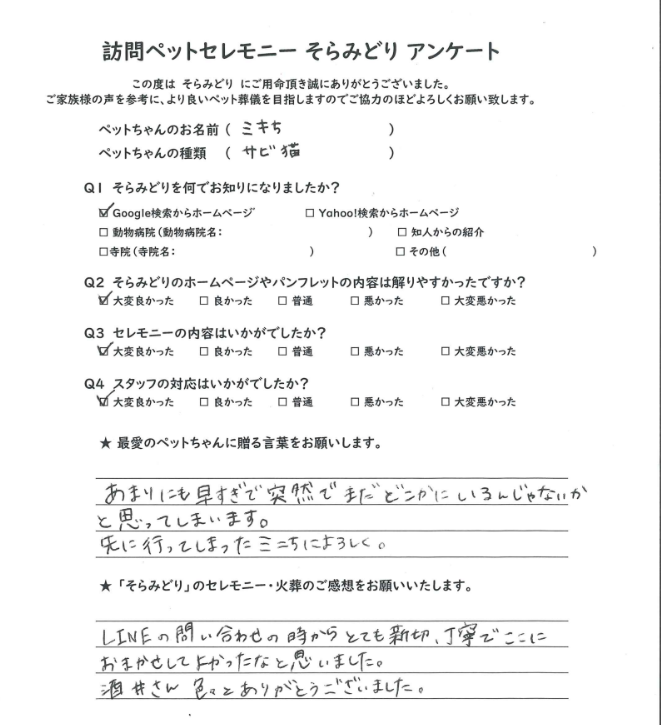 訪問ペットセレモニー そらみどり アンケート
この度は そらみどり にご用命頂き誠にありがとうございました。
ご家族様の声を参考に、より良いペット葬儀を目指しますのでご協力のほどよろしくお願い致します。
ペットちゃんのお名前 ( ミキち )
ペットちゃんの種類 ( サビ猫 )
Q1 そらみどりを何でお知りになりましたか?
☑ Google検索からホームページ □ Yahoo!検索からホームページ
□ 動物病院(動物病院名: ) □ 知人からの紹介
□寺院(寺院名: ) □ その他( )
Q2 そらみどりのホームページやパンフレットの内容は解りやすかったですか?
☑ 大変良かった □ 良かった □ 普通 □ 悪かった □ 大変悪かった
Q3 セレモニーの内容はいかがでしたか?
☑ 大変良かった □ 良かった □ 普通 □ 悪かった □ 大変悪かった
Q4 スタッフの対応はいかがでしたか?
☑ 大変良かった □ 良かった □ 普通 □ 悪かった □ 大変悪かった
★ 最愛のペットちゃんに贈る言葉をお願いします。
あまりにも早すぎで突然でまだどこかにいるんじゃないか
と思ってしまいます。
先に行ってしまったミニちによろしく。
★ 「そらみどり」のセレモニー・火葬のご感想をお願いいたします。
LINEの問い合わせの時からとても親切、丁寧でここに
おまかせしてよかったなと思いました。
酒井さん 色々とありがとうございました。